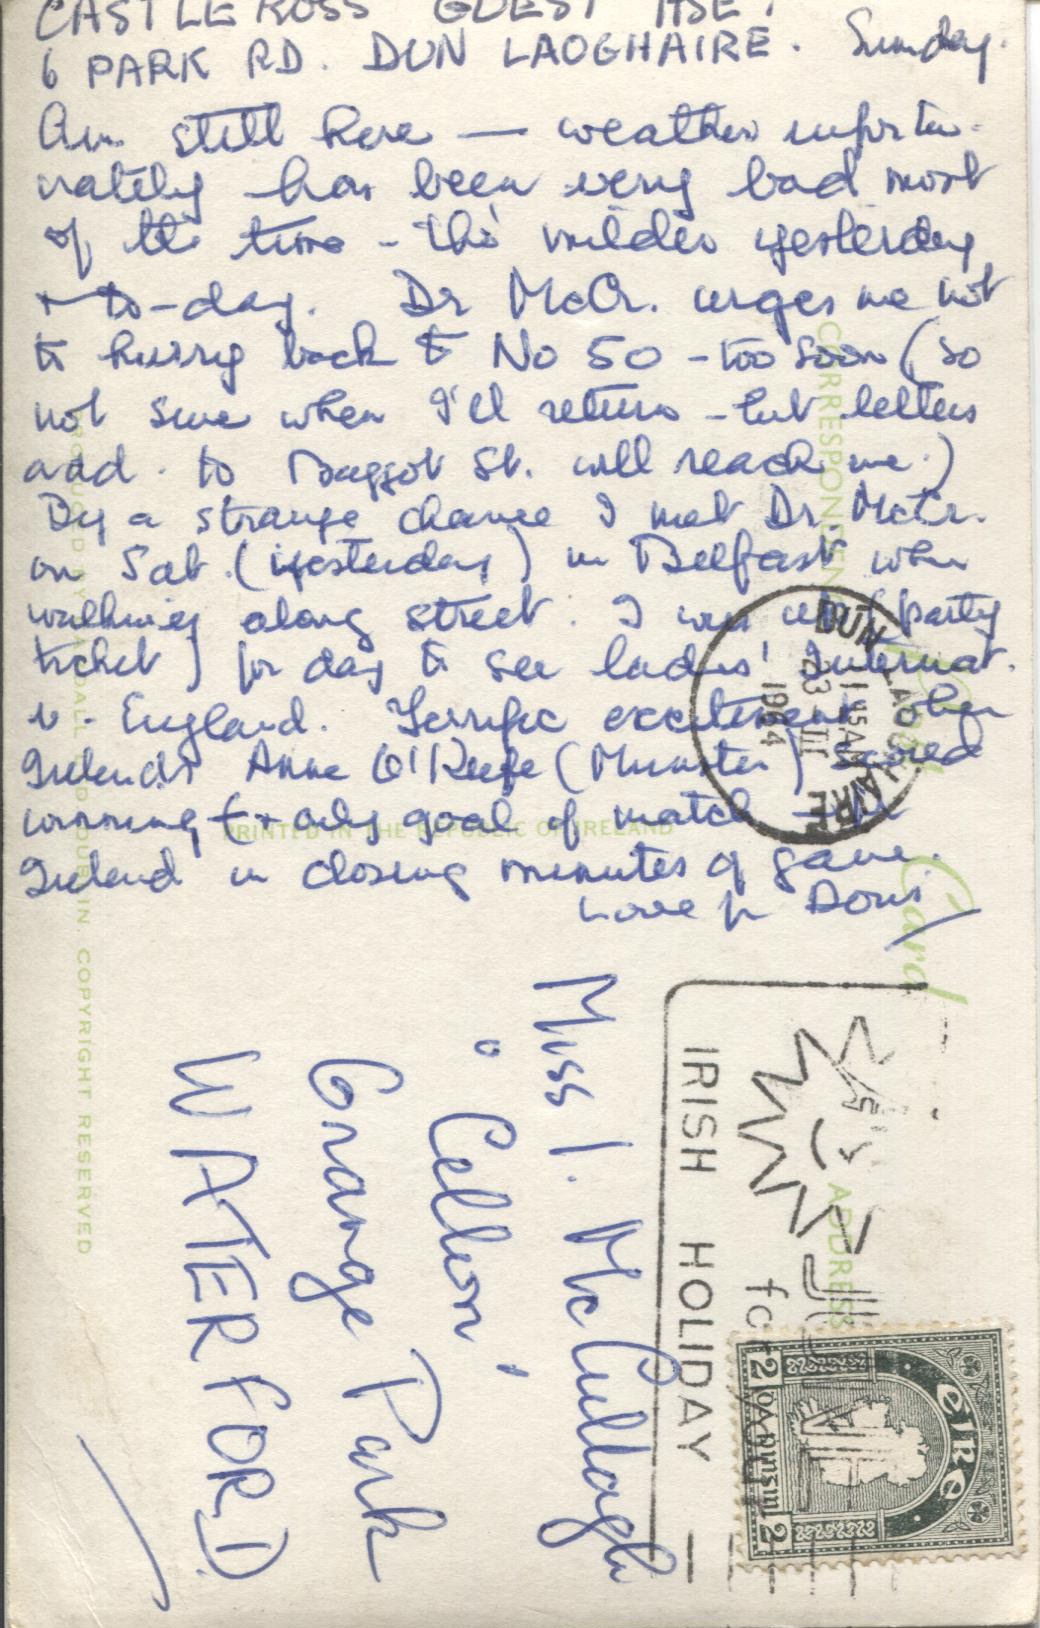 CASTLE ROSS GUEST HSE.
6 PARK RD. DUN LAOGHAIRE. Sunday.
Am still here — weather unfortu-
nately has been very bad most
of the time - tho' milder yesterday
+ to-day. Dr McCr. urges me not
to hurry back to No 50 - too soon (so
not sure when I'll return - but letters
add. to Baggot St. will reach me.)
By a strange chance I met Dr. McCr.
on Sat. (yesterday) in Belfast when
walking along street. I was up (party
ticket) for day to see ladies' Internat.
v. England. Terrific excitement when
Ireland's Anne O'Keefe (Munster) scored
winning (+ only goal of match - for
Ireland in closing minutes of game.
Love fr Doris
Miss I. McCullagh
"Cellon'
Grange Park
WATERFORD
Post Card
CORRESPONDENCE
ADDRESS
PRINTED IN THE REPUBLIC OF IRELAND
DUBLIN. COPYRIGHT RESERVED
DUN LAOGHAIRE
23 III
1964
IRISH HOLIDAY
for
éire
2 2